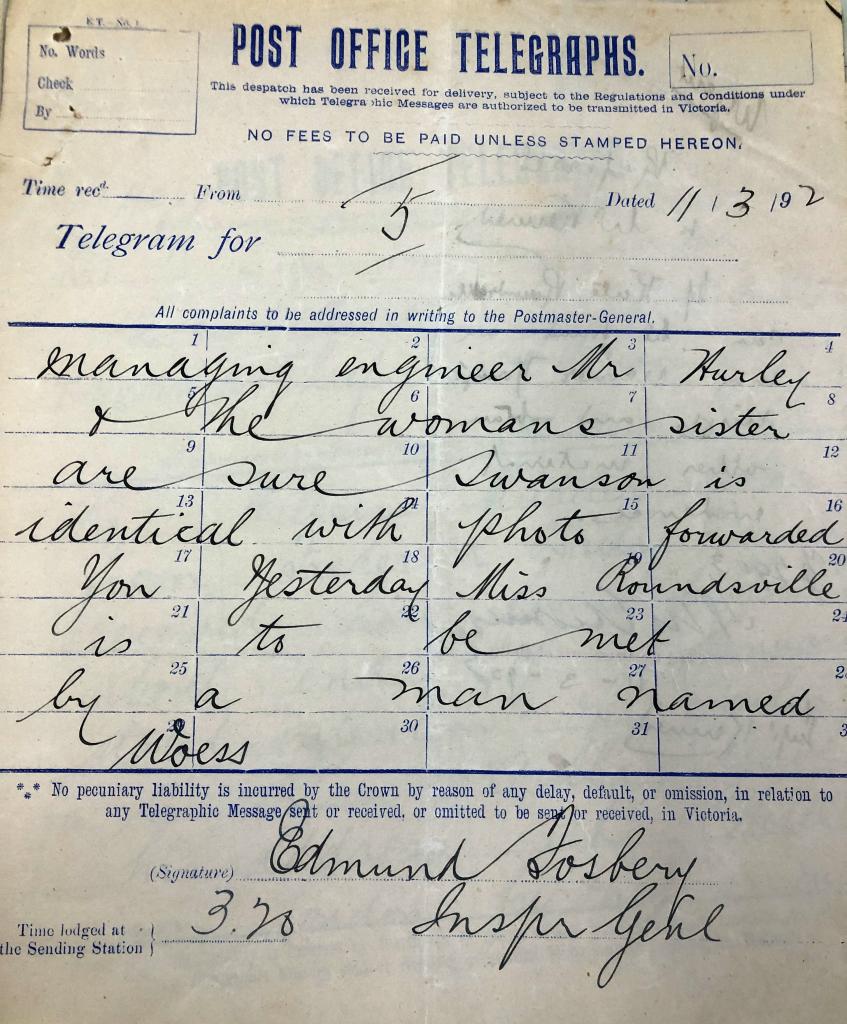 E.T. No. 1
No. Words
Check
By
POST OFFICE TELEGRAPHS.
No.
This despatch has been received for delivery, subject to the Regulations and Conditions under
which Telegraphic Messages are authorized to be transmitted in Victoria.
NO FEES TO BE PAID UNLESS STAMPED HEREON.
Time recd. From 5 Dated 11 / 3 / 92
Telegram for
All complaints to be addressed in writing to the Postmaster-General.
1 2 3 4
managing engineer Mr Hurley
5 6 7 8
& the womans sister
9 10 11 12
are sure Swanson is
13 14 15 16
identical with photo forwarded
17 18 19 20
You Yesterday Miss Roundsville
21 22 23 24
is to be met
25 26 27 28
by a man named
29 30 31 3
Woess
*** No pecuniary liability is incurred by the Crown by reason of any delay, default, or omission, in relation to
any Telegraphic Message sent or received, or omitted to be sent or received, in Victoria.
(Signature) Edmund Fosbery
Time lodged at 3.20 Inspr Genl
the Sending Station